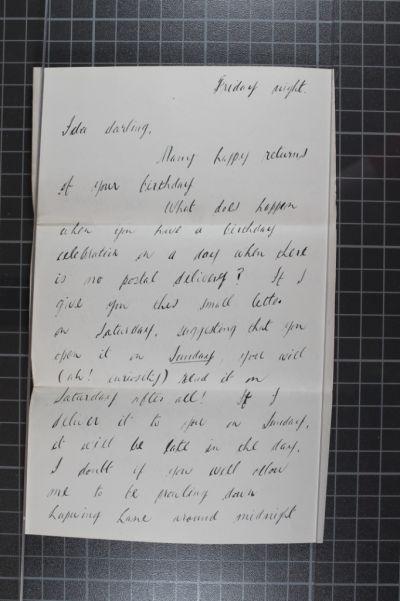 Friday night.
Ida darling,
Many happy returns
of your birthday
What does happen
when you have a birthday
celebration on a day when there
is no postal delivery? If I
give you this small letter
on Saturday, suggesting that you
open it on Sunday, you will
(ah! curiosity) read it on
Saturday after all! If I
deliver it to you on Sunday,
it will be late in the day.
I doubt if you will allow
me to be prowling down
Lane around midnight